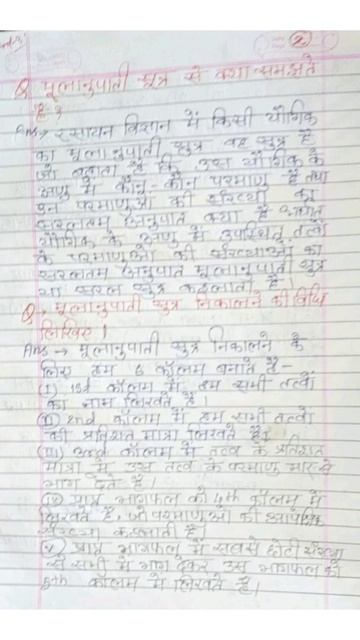 2
Q मूलानुपाती सूत्र से क्या समझते
है ?
Ans → रसायन विज्ञान में किसी यौगिक
का मूलानुपाती सूत्र वह सूत्र है
जो बताता है कि उस यौगिक के
अणु में कौन-कौन परमाणु है तथा
इन परमाणुओं की संख्या का
सरलतम अनुपात क्या है अर्थात
यौगिक के अणु में उपस्थित तत्वों
के परमाणुओं की संख्याओं का
सरलतम अनुपात मूलानुपाती सूत्र
या सरल सूत्र कहलाती है।
Q → मूलानुपाती सूत्र निकालने की विधि
लिखिए।
Ans → मूलानुपाती सूत्र निकालने के
लिए हम 6 कॉलम बनाते है-
(I) 1st कॉलम में हम सभी तत्वों
का नाम लिखते है।
(II) 2nd कॉलम में हम सभी तत्वों
की प्रतिशत मात्रा लिखते है।
(III) 3rd कॉलम में तत्व के प्रतिशत
मात्रा में उस तत्व के परमाणु भार से
भाग देते है।
(IV) प्राप्त भागफल को 4th कॉलम में
लिखते है, जो परमाणुओं की आपेक्षिक
संख्या कहलाती है।
(V) प्राप्त भागफल में सबसे छोटी संख्या
से सभी में भाग देकर उस भागफल को
5th कॉलम में लिखते है।